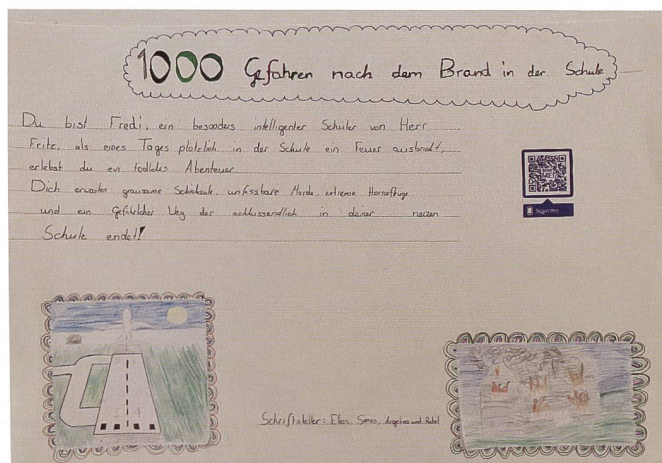 1000 Gefahren nach dem Brand in der Schule
Du bist Fredi, ein besonders intelligenter Schüler von Herr
Fritz, als eines Tages plötzlich in der Schule ein Feuer ausbricht,
erlebst du ein tödliches Abenteuer
Dich erwarten grausame Schicksale, unfassbare Morde, extreme Horrorflüge
und ein gefährlicher Weg der schlussendlich in deiner neuen
Schule endet!
Scan me
Schriftsteller: Elias, Simon, Angelina und